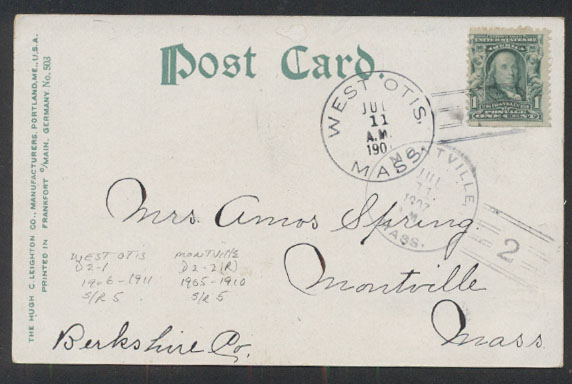 Post Card.
THE HUGH C. LEIGHTON CO., MANUFACTURERS, PORTLAND, ME., U.S.A.
PRINTED IN FRANKFORT O/MAIN, GERMANY No. 503
1 POSTAGE 1
ONE CENT
WEST OTIS,
JUL
11
A.M.
190
MASS.
NTVILLE,
JUL
11
1907
MASS.
2
Mrs. Amos Spring.
Montville
Mass.
Berkshire Co.
WEST OTIS
D2-1
1906-1911
S/R 5
MONTVILLE
D2-2(R)
1905-1910
S/R 5